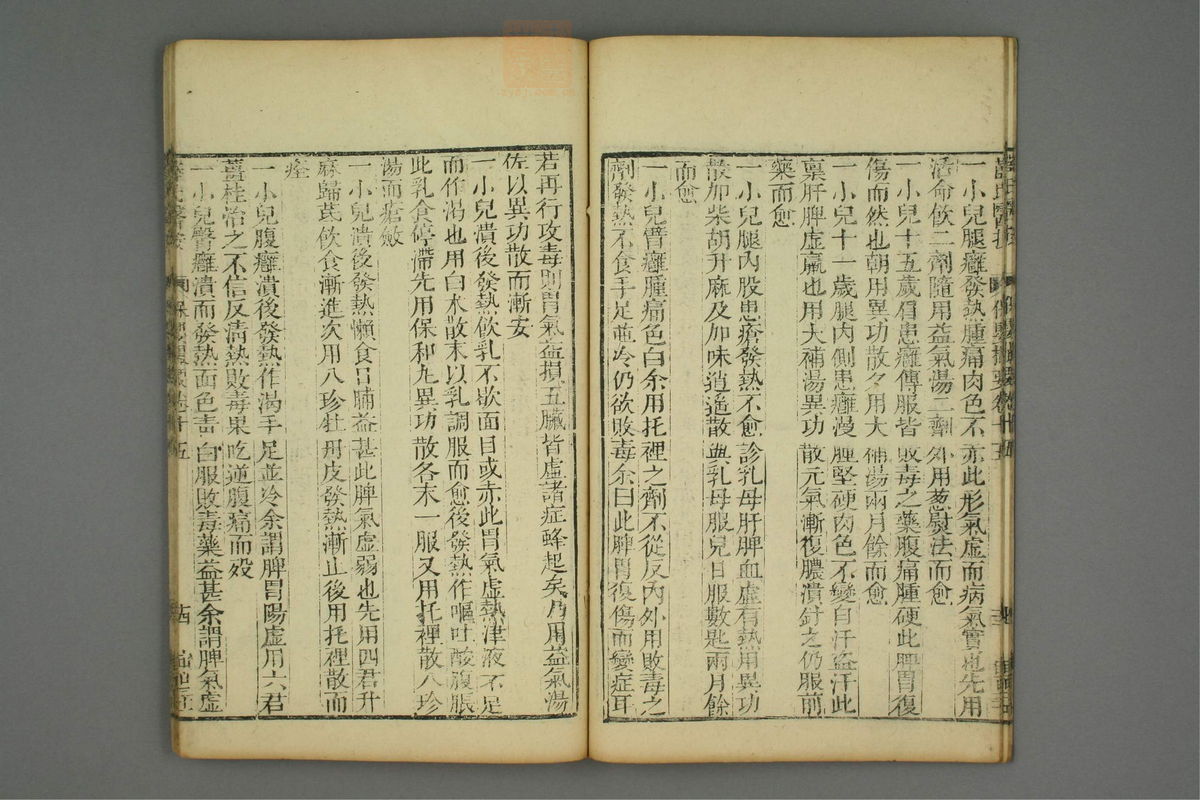 一小兒腿癰發熱腫痛肉色不赤此形氣虛而病氣實也先用
活命飲二劑隨用益氣湯二劑外用葱熨法而愈
一小兒十五歲肩患癰傳服皆敗毒之藥腹痛腫硬此脾胃復
傷而然也朝用異功散夕用大補湯兩月餘而愈
一小兒十一歲腿內側患癰漫腫堅硬肉色不變自汗盜汗此
稟肝脾虛羸也用大補湯異功散元氣漸復膿潰針之仍服前
藥而愈
一小兒腿內股患瘡發熱不愈診乳母肝脾血虛有熱用異功
散加柴胡升麻及加味逍遙散與乳母服兒日服數匙兩月餘
而愈
一小兒臂癰腫痛色白余用托裡之劑不從反內外用敗毒之
劑發熱不食手足並冷仍欲敗毒余曰此脾胃復傷而變症耳
若再行攻毒則胃氣益損五臟皆虛諸症蜂起矣乃用益氣湯
佐以異功散而漸安
一小兒潰後發熱飲乳不歇面目或赤此胃氣虛熱津液不足
而作渴也用白朮散末以乳調服而愈後發熱作嘔吐酸腹脹
此乳食停滯先用保和丸異功散各末一服又用托裡散八珍
湯而瘡斂
一小兒潰後發熱懶食日晡益甚此脾氣虛弱也先用四君升
麻歸芪飲食漸進次用八珍牡丹皮發熱漸止後用托裡散而
痊
一小兒腹癰潰後發熱作渴手足並冷余謂脾胃陽虛用六君
薑桂治之不信反清熱敗毒果吃逆腹痛而歿
一小兒臀癰潰而發熱面色青白服敗毒藥益甚余謂脾氣虛